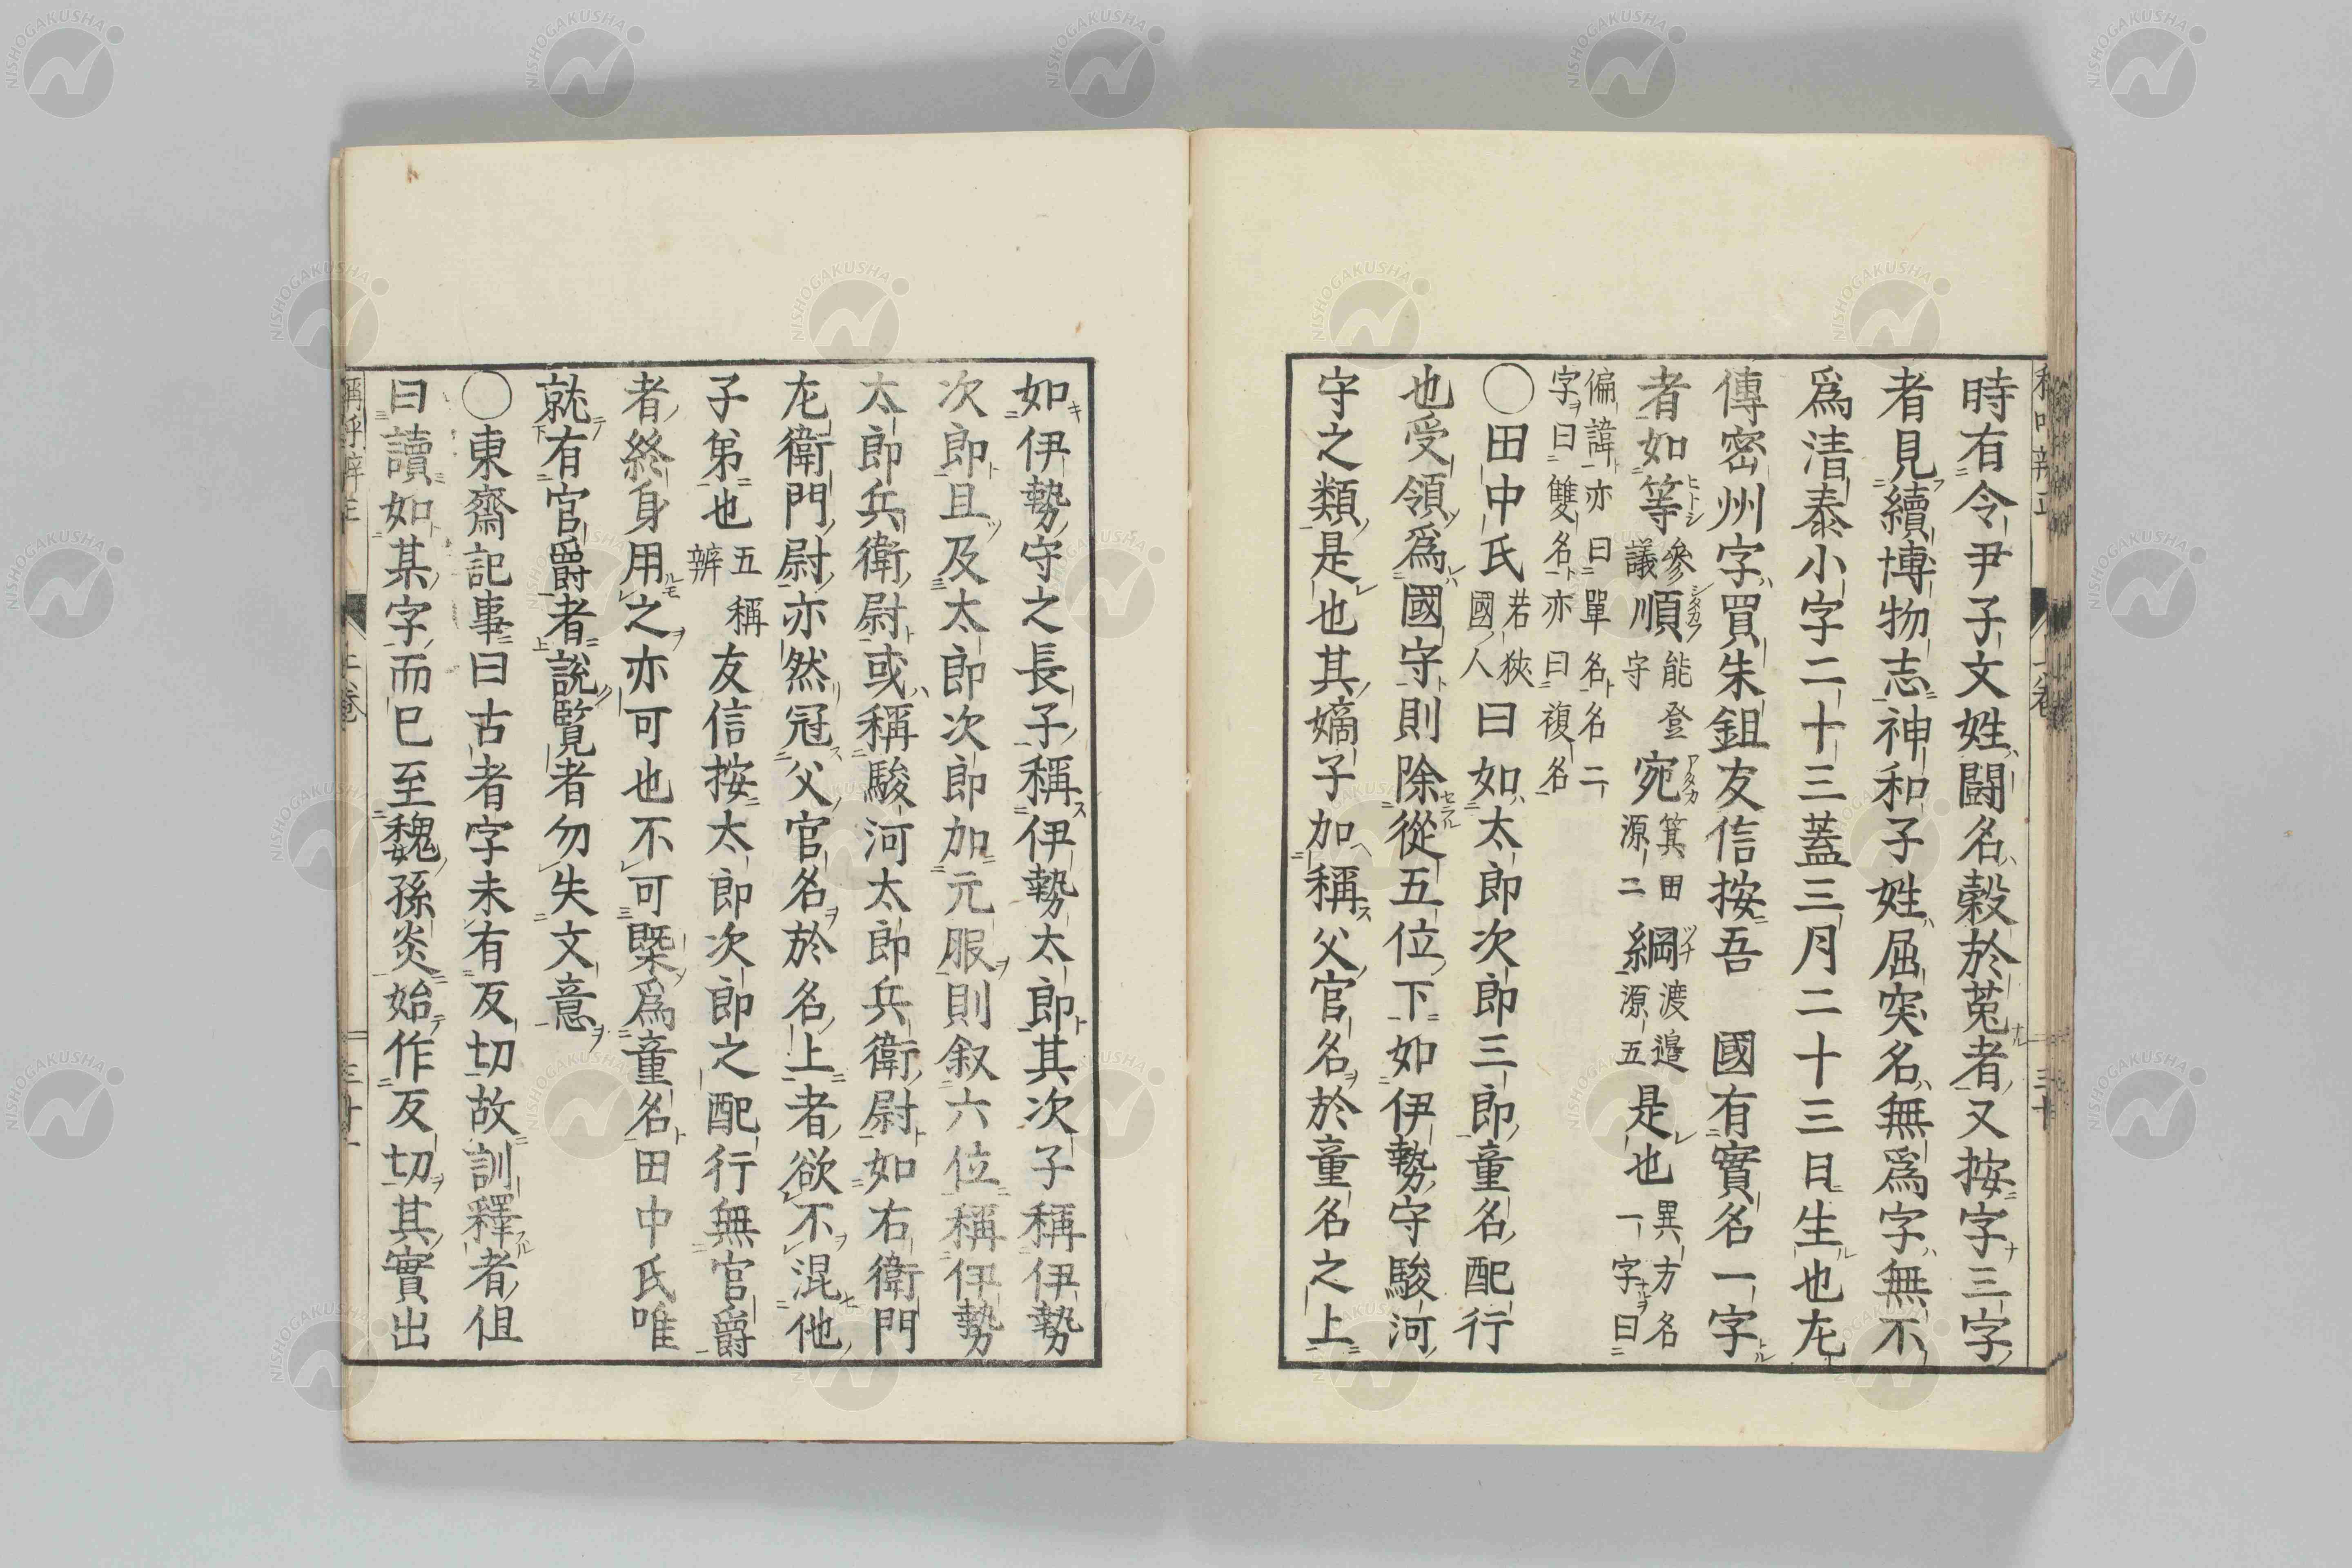 時有令尹子文姓闘名穀於菟者又按字三字
者見續博物志神和子姓屈突名無爲字無不
爲清泰小字二十三蓋三月二十三日生也左
傳密州字買朱鉏友信按吾國有實名一字
者如等參議順能登字宛箕田源二綱渡邉源五是也異方名一字曰
偏諱亦曰單名名二
字曰雙名亦曰複名
○田中氏若狹國人曰如太郎次郎三郎童名配行
也受領爲國守則除從五位下如伊勢守駿河
守之類是也其嫡子加稱父官名於童名之上
如伊勢守之長子稱伊勢太郎其次子稱伊勢
次郎且及太郎次郎加元服則叙六位稱伊勢
太郎兵衛尉或稱駿河太郎兵衛尉如右衛門
左衛門尉亦然冠父官名於名上者欲不混他
子第也五稱辨友信按太郎次郎之配行無官爵
者終身用之亦可也不可槩爲童名田中氏唯
就有官爵者說覧者勿失文意
○東齋記事曰古者字未有反切故訓釋者但
曰讀如某字而已至魏孫炎始作反切其實出
稱呼辨正
上巻
三十一